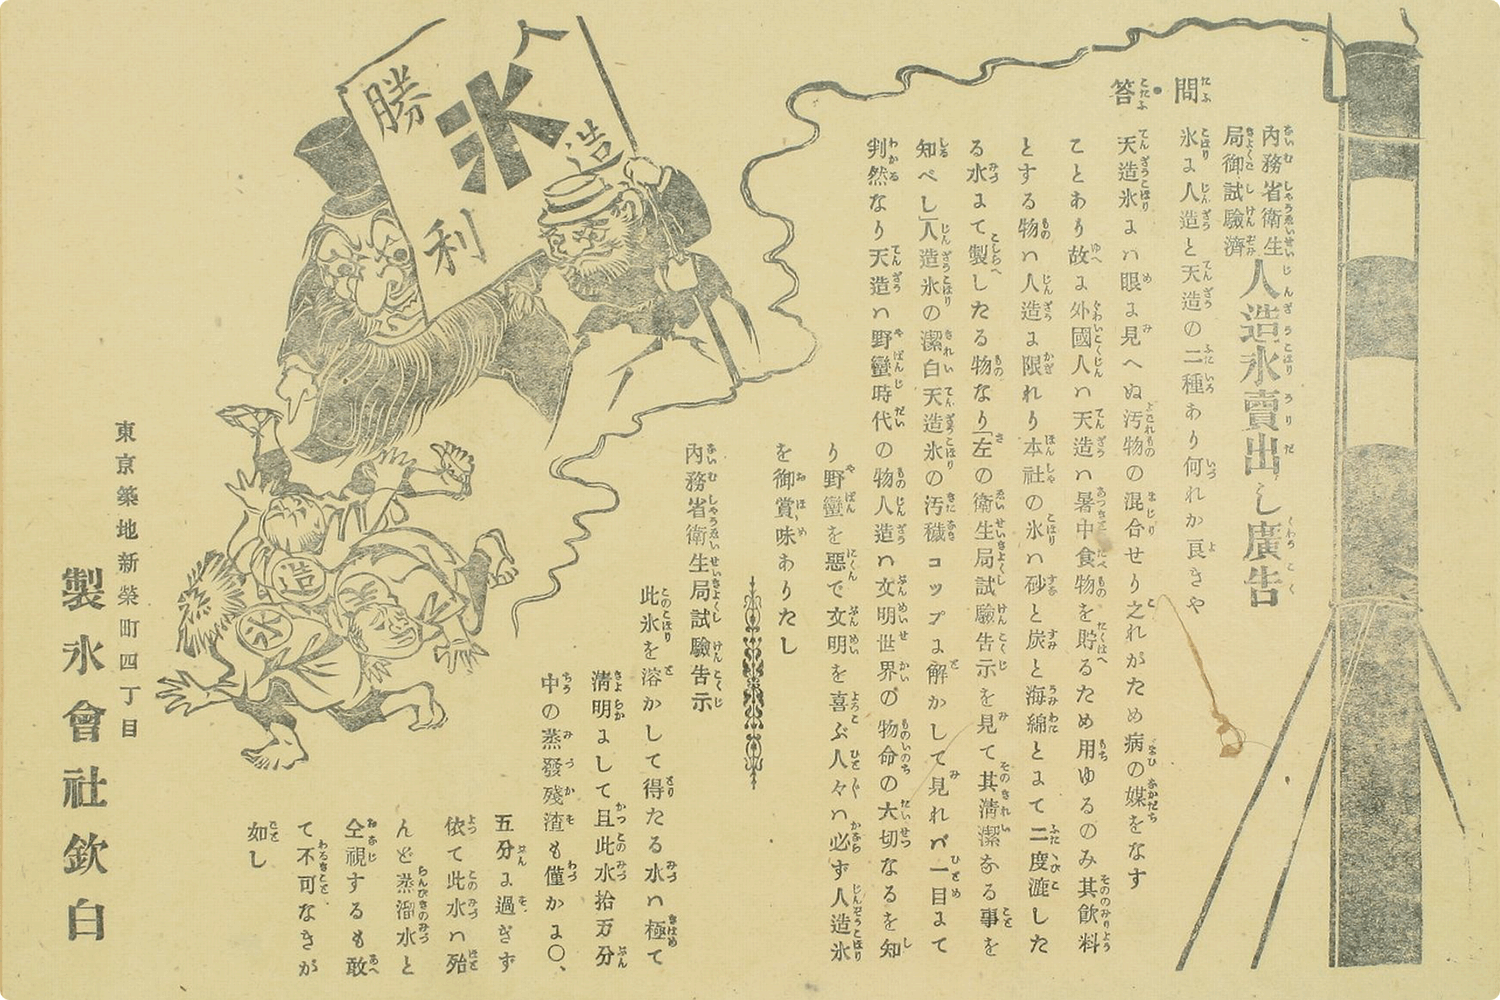 問答
内務省衛生
局御試驗濟
人造氷賣出し廣告
氷ニ人造と天造の二種あり何れか良きや
天造氷ニハ眼ニ見へぬ汚物の混合せり之れがため病の媒をなす
ことあり故ニ外國人ハ天造ハ暑中食物を貯るため用ゆるのみ其飲料
とする物ハ人造ニ限れり本社の氷ハ砂と炭と海綿とにて二度漉した
る水にて製したる物なり「左の衛生局試驗告示を見て其清潔なる事を
知べし」人造氷の潔白天造氷の汚穢コップニ解かして見れバ一目にて
判然なり天造ハ野蠻時代の物人造ハ文明世界の物命の大切なるを知
り野蠻を惡で文明を喜ぶ人々ハ必ず人造氷
を御賞味ありたし
内務省衛生局試驗告示
此氷を溶かして得たる水ハ極て
清明にして且此水拾万分
中の蒸發殘渣も僅かニ〇、
五分ニ過ぎず
依て此水ハ殆
んど蒸溜水と
仝視するも敢
て不可なきが
如し
東京築地新榮町四丁目
製氷會社欽白
人造氷
勝利
造
氷